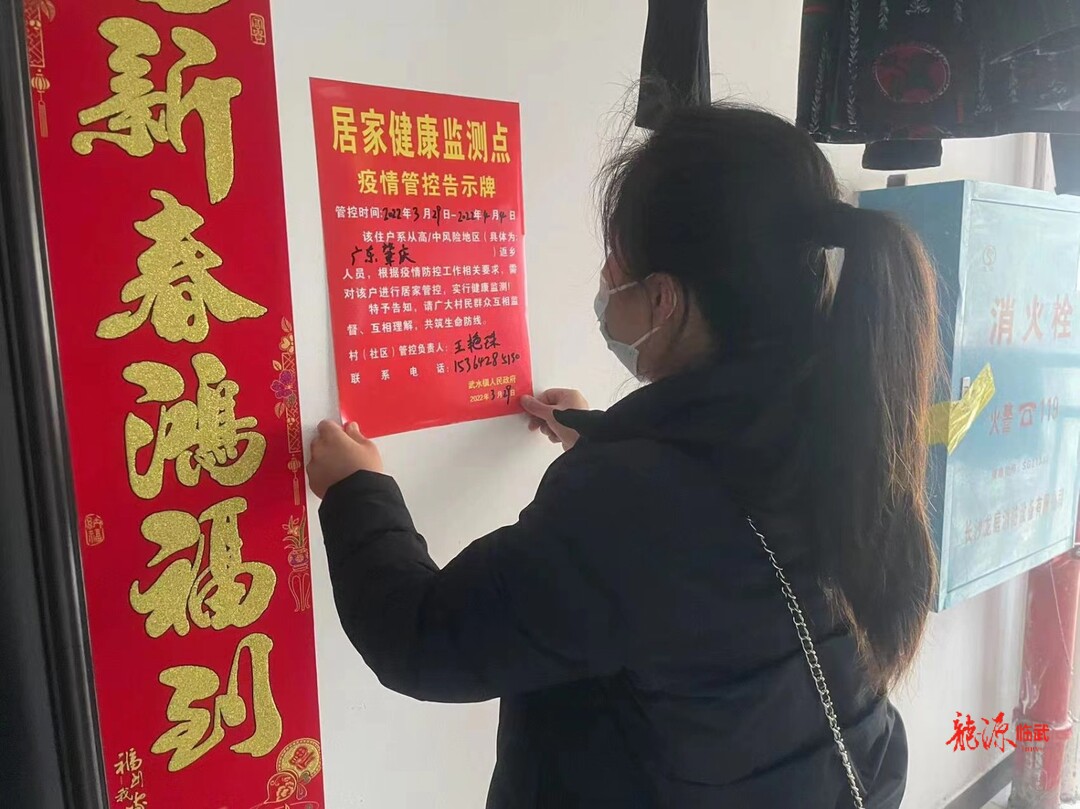 新春鸿福到
居家健康监测点
疫情管控告示牌
管控时间:2022年3月29日-2022年4月 日
该住户系从高/中风险地区(具体为:
广东肇庆 )返乡
人员,根据疫情防控工作相关要求,需
对该户进行居家管控,实行健康监测!
特予告知,请广大村民群众互相监
督、互相理解,共筑生命防线。
村(社区)管控负责人:王艳珠
联系电话:15364285150
武水镇人民政府
2022年3月29日
消火栓
火警☎119
龍源临武